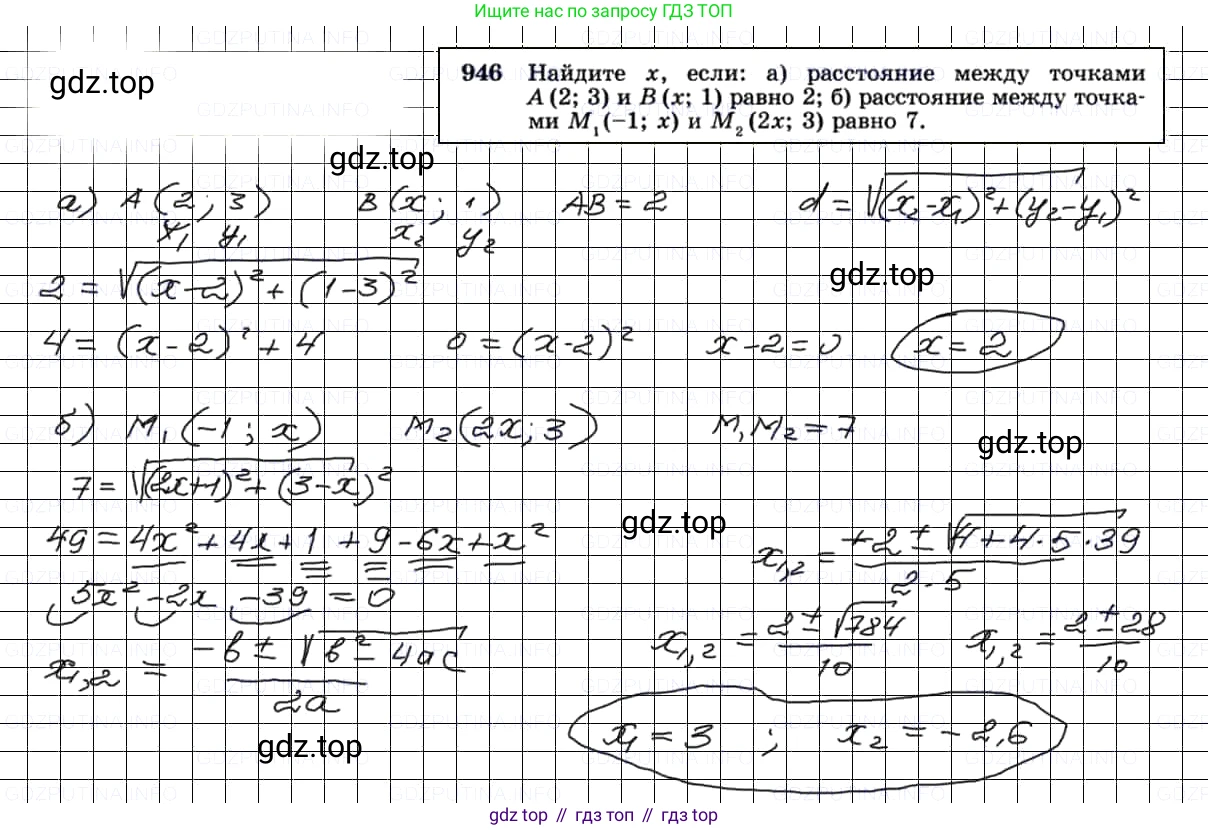 Ищите нас по запросу ГДЗ ТОП
gdz.top
946 Найдите x, если: а) расстояние между точками
A (2; 3) и B (x; 1) равно 2; б) расстояние между точка-
ми M₁(−1; x) и M₂(2x; 3) равно 7.
gdz.top
а) A (2 ; 3) B (x ; 1) AB = 2 d = √(x₂-x₁)²+(y₂-y₁)²
x₁ y₁ x₂ y₂
gdz.top
2 = √(x-2)² + (1-3)²
4 = (x-2)² + 4 0 = (x-2)² x-2=0 x = 2
б) M₁(-1 ; x) M₂(2x; 3) M₁M₂ = 7
gdz.top
7 = √(2x+1)² + (3-x)²
gdz.top
49 = 4x² + 4x + 1 + 9 - 6x + x²
x₁,₂ = +2 ± √4+4·5·39 / 2·5
5x² - 2x - 39 = 0
x₁,₂ = -b ± √b² - 4ac / 2a
x₁,₂ = 2 ± √784 / 10 x₁,₂ = 2 ± 28 / 10
gdz.top
x₁ = 3 ; x₂ = -2,6
gdz.top // гдз топ // гдз.top
GDZPUTINA.INFO